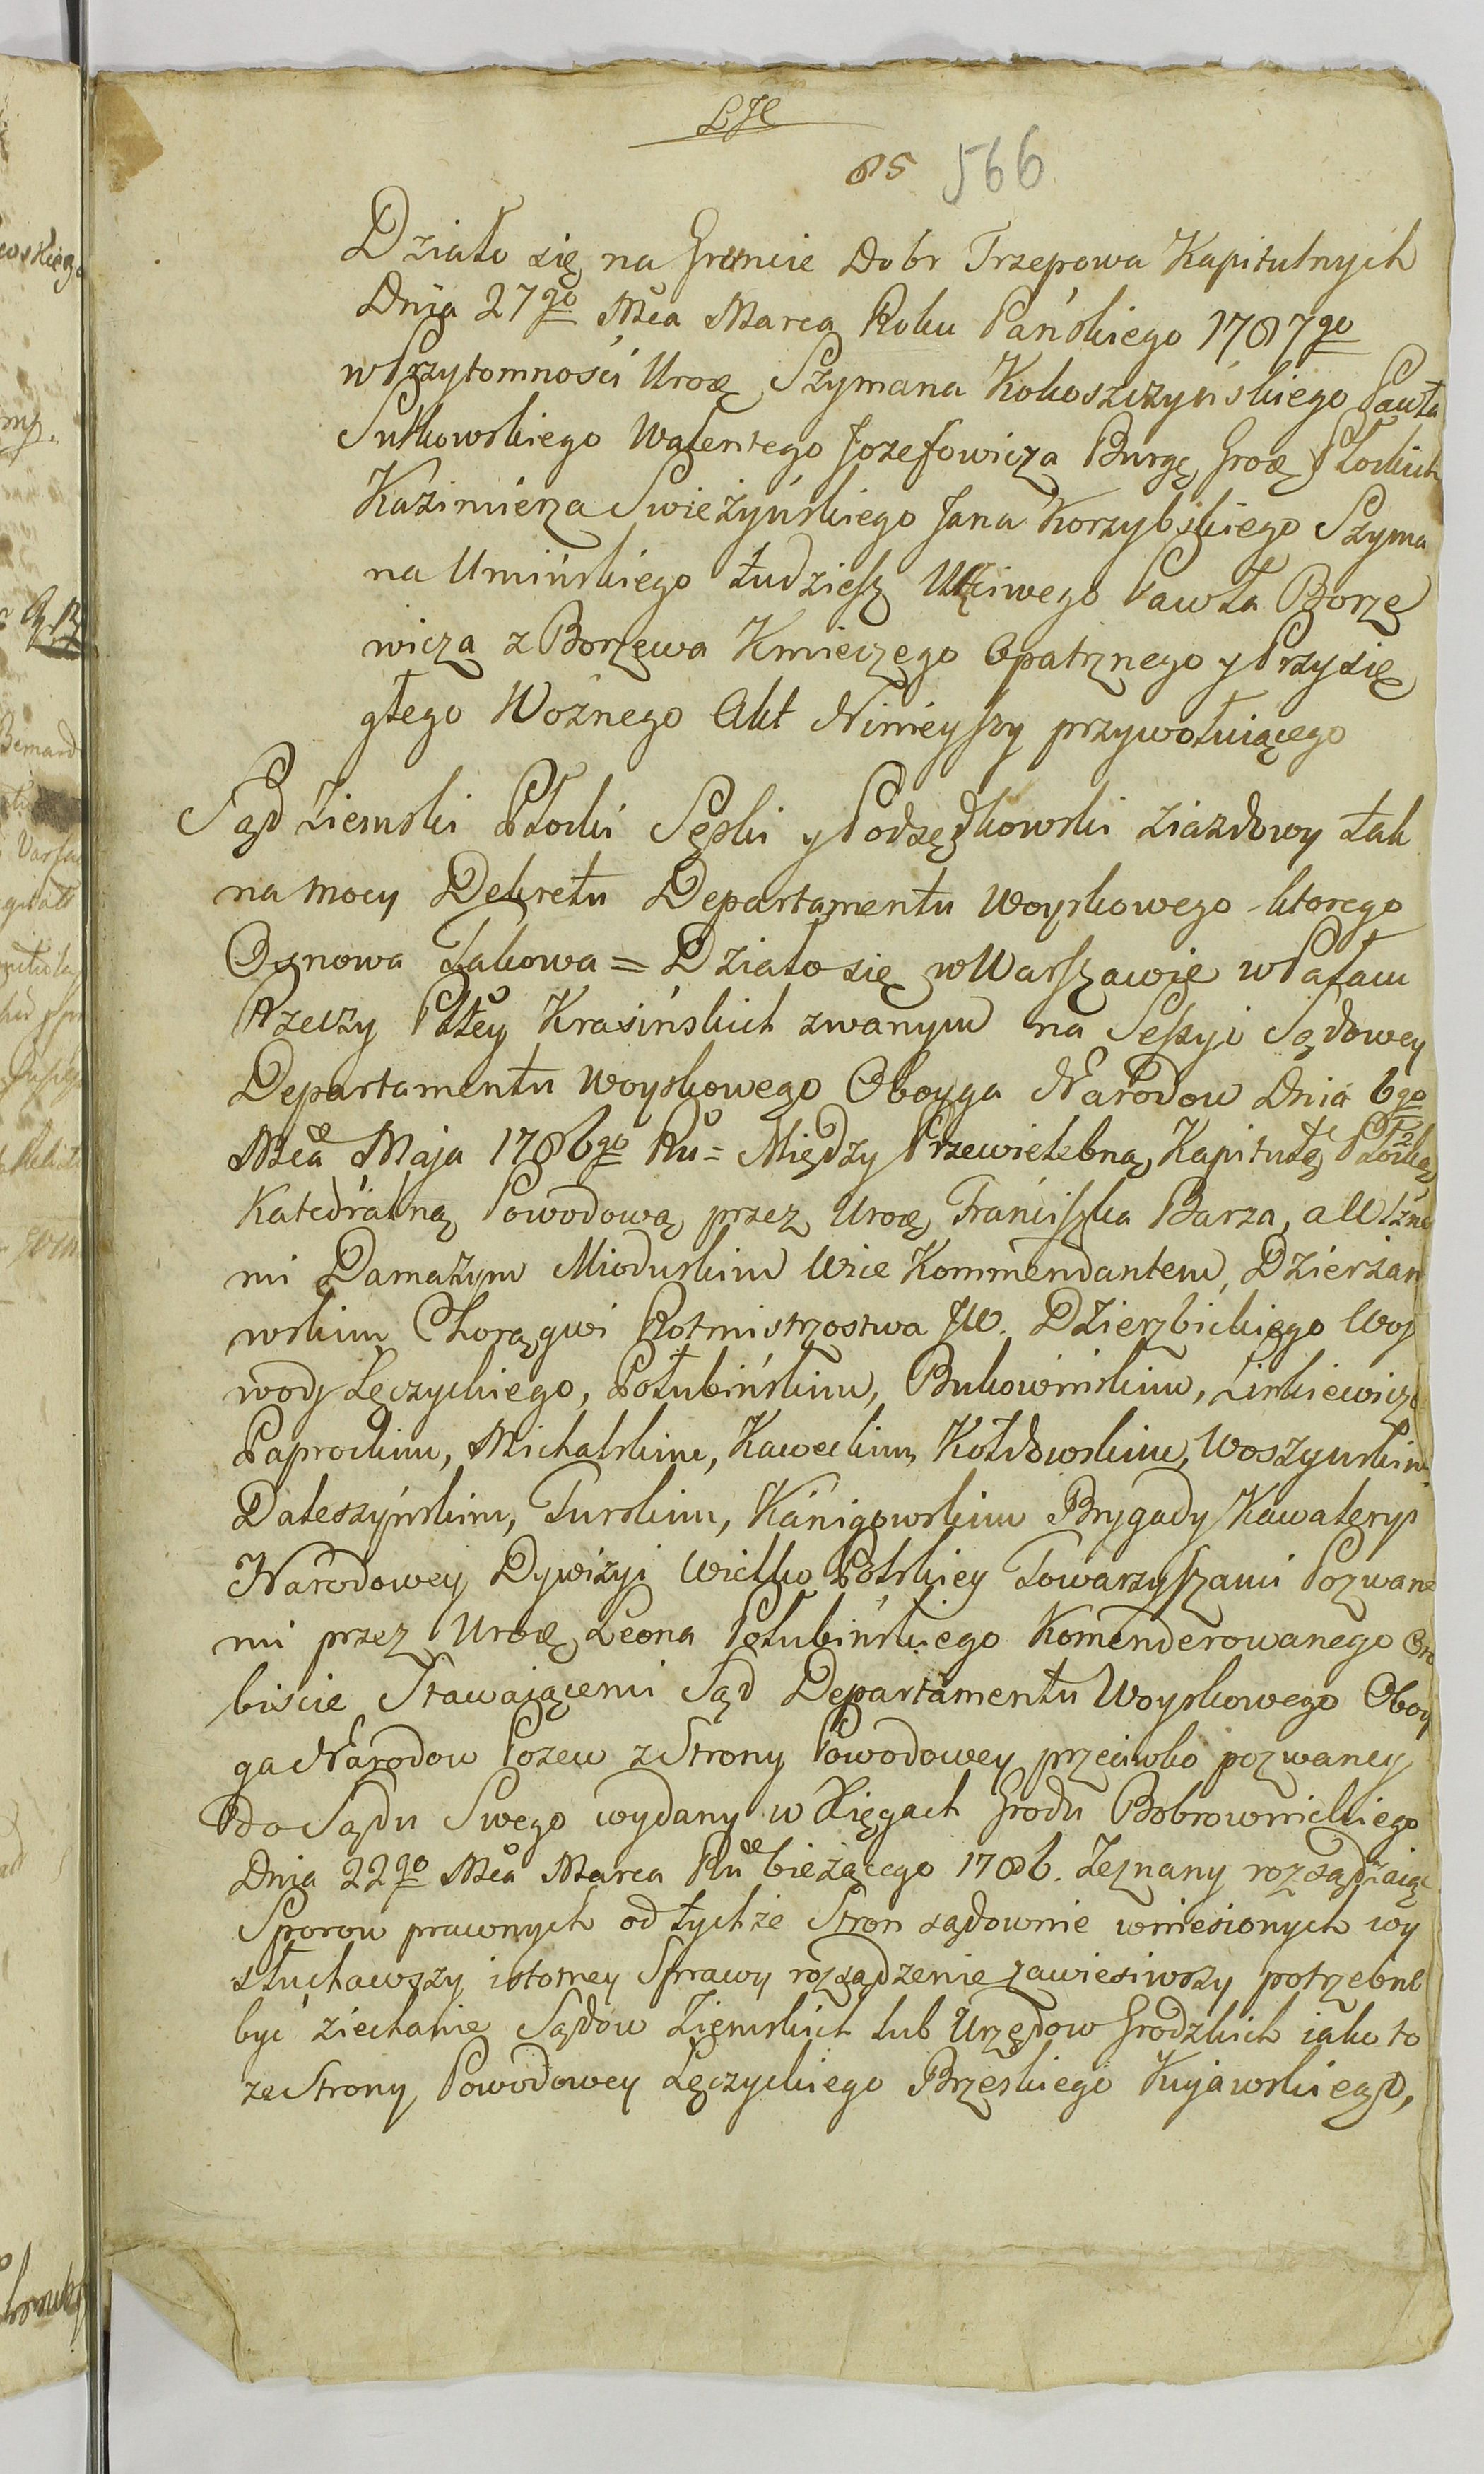 85 566
Działo się na Gruncie Dobr Trzepowa Kapitulnych
Dnia 27go Mca Marca Roku Pańskiego 1787go
w Przytomności Uroę Szymana Kokoszczyńskiego Pawła
Sutkowskiego Walentego Jozefowicza Burgę Groę Płockich
Kazimierza Swieżyńskiego Jana Korzybskiego Szyma
na Umińskiego tudziesz Uczciwego Pawła Borzę
wicza z Borzewa Kmieczego Opatrznego y Przysię
głego Woznego Akt Ninieyszy przywołuiącego
Sąd Ziemski Płocki Sęski y Podsędkowski ziazdowy tak
na mocy Dekretu Departamentu Woyskowego ktorego
Osnowa Takowa = Działo się w Warszawie w Pałacu
Rzeczy Pltey Krasińskich zwanym na Sessyi Sądowey
Departamentu Woyskowego Oboyga Narodow Dnia 6go
Mca Maja 1786go Ru = Między Przewielebną Kapitułą Płocką
Katedralną Powodową przez Uroę Franciszka Barza, a Urzne
mi Damazym Mioduskim Wice Kommendantem, Dzierżan
wskim Chorągwi Rotmistrzostwa JW. Dzierzbickiego Woj
wody Łęczyckiego, Połubińskim, Bukowińskim, Liskiewicze
Paprockim, Michalskim, Kaweckim, Kołdowskim, Woszynskim
Daleszyńskim, Turskim, Kanigowskim Brygady Kawaleryi
Narodowey Dywizyi Wielko Polskiey Towarzyszami Pozwane
mi przez Uroę Leona Połubińskiego Komenderowanego Oso
biscie Stawaiącemi Sąd Departamentu Woyskowego Oboy
ga Narodow Pozew z Strony Powodowey przeciwko pozwaney
do Sądu Swego wydany w Xięgach Grodu Bobrownickiego
Dnia 22go Mca Marca Ru bieżącego 1786. Zeznany rozsądzaiąc
Sporow prawnych od tychże Stron sądownie wniesionych wy
słuchawszy istotney Sprawy rozsądzenie zawiesiwszy potrzebne
być ziechanie Sądow Ziemskich lub Urzędow Grodzkich iako to
ze Strony Powodowey Łęczyckiego Brzeskiego Kujawskiego,